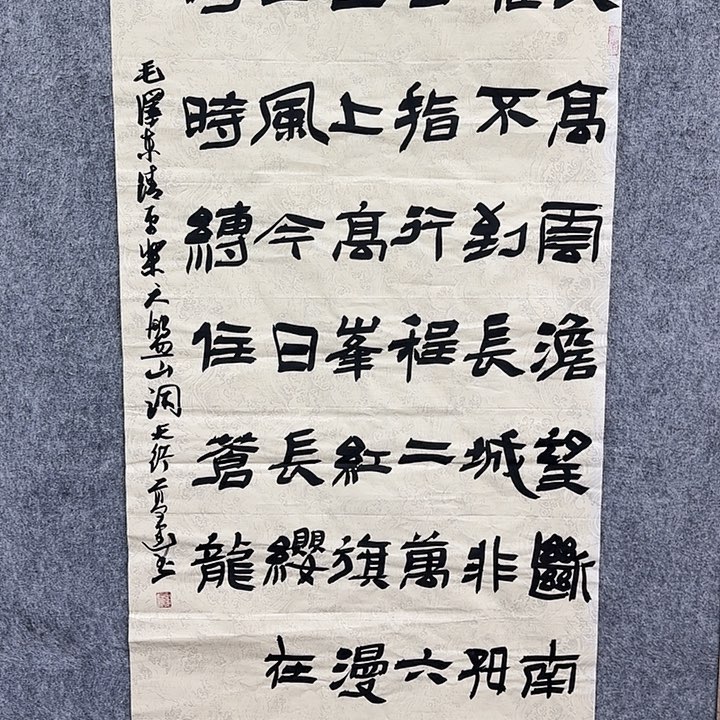 高雲澹望斷南
不到長城非好
指行程二萬六
上高峯紅旗漫
風今日長纓在
時縛住蒼龍
毛澤東清平樂六盤山詞